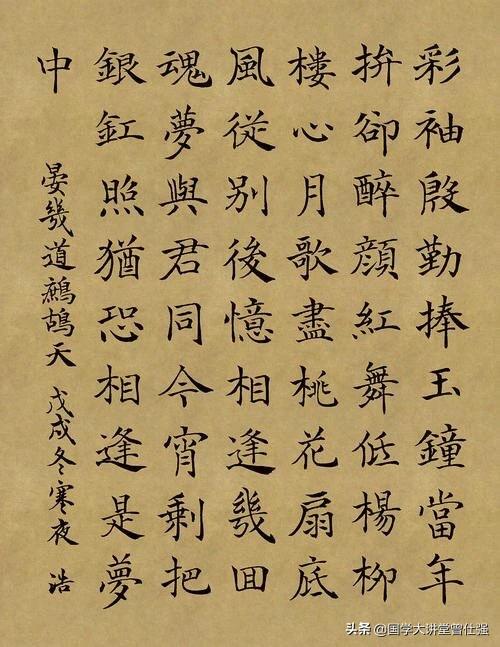 彩袖殷勤捧玉鐘當年
拚卻醉顔紅舞低楊柳
樓心月歌盡桃花扇底
風從别後憶相逢幾囬
魂夢與君同今宵剩把
銀釭照猶恐相逢是夢
中
晏幾道鷓鴣天 戊戌冬寒夜 浩
头条 @国学大讲堂曾仕强